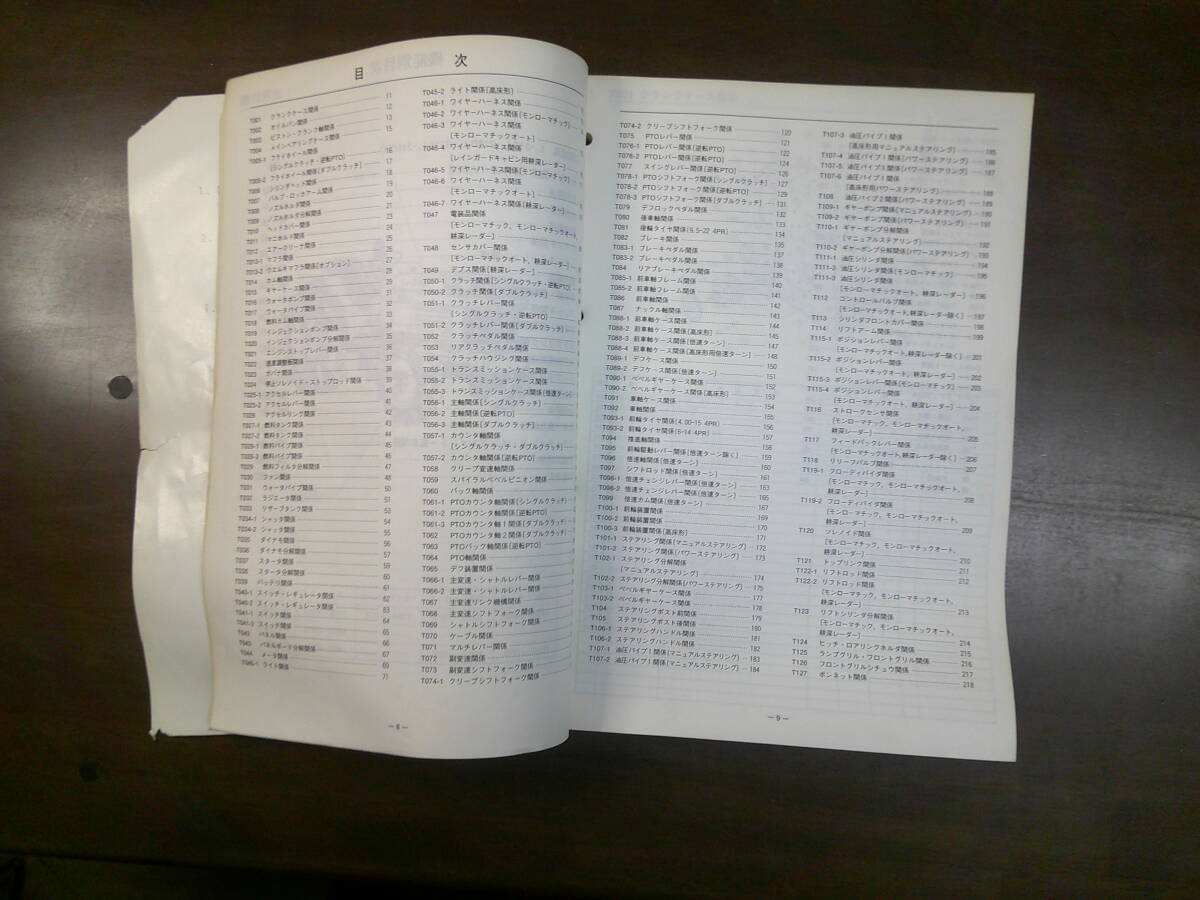 目 次
T001 クランクケース関係 11
T002 オイルパン関係 12
T003 ピストン・クランク軸関係 13
T004 メインベアリングケース関係 15
T005-1 フライホイール関係
[シングルクラッチ・逆転PTO] 16
T005-2 フライホイール関係[ダブルクラッチ] 17
T006 シリンダヘッド関係 18
T007 バルブ・ロッカアーム関係 19
T008 ノズルホルダ関係 21
T009 ノズルホルダ分解関係
T010 ヘッドカバー関係
T011 マニホルド関係
T012 エアークリーナ関係
T013-1 マフラ関係
T013-2 ウエムキマフラ関係[オプション]
T014 カム軸関係
T015 ギヤーケース関係
T016 ウォータポンプ関係
T017 ウォータパイプ関係
T018 燃料カム軸関係
T019 インジェクションポンプ関係
T020 インジェクションポンプ分解関係
T021 エンジンストップレバー関係
T022 速度調整板関係
T023 ガバナ関係
T024 停止ソレノイド・ストップロッド関係
T025-1 アクセルレバー関係
T025-2 アクセルレバー関係
T026 アクセルリンク関係
T027-1 燃料タンク関係
T027-2 燃料タンク関係
T028-1 燃料パイプ関係
T028-2 燃料パイプ関係
T029 燃料フィルタ分解関係
T030 ファン関係
T031 ウォータパイプ関係
T032 ラジエータ関係
T033 リザーブタンク関係
T034-1 シャッタ関係
T034-2 シャッタ関係
T035 ダイナモ関係
T036 ダイナモ分解関係
T037 スタータ関係
T038 スタータ分解関係
T039 バッテリ関係
T040-1 スイッチ・レギュレータ関係
T040-2 スイッチ・レギュレータ関係
T041-1 スイッチ関係
T041-2 スイッチ関係
T042 パネル関係
T043 パネルボード分解関係
T044 メータ関係
T045-1 ライト関係 71
T045-2 ライト関係[高床形]
T046-1 ワイヤーハーネス関係
T046-2 ワイヤーハーネス関係[モンローマチック]
T046-3 ワイヤーハーネス関係
[モンローマチックオート]
T046-4 ワイヤーハーネス関係
[レインガードキャビン用耕深レーダー]
T046-5 ワイヤーハーネス関係[モンローマチック]
T046-6 ワイヤーハーネス関係
[モンローマチックオート]
T046-7 ワイヤーハーネス関係[耕深レーダー]
T047 電装品関係
[モンローマチック、モンローマチックオート、
耕深レーダー]
T048 センサカバー関係
[モンローマチックオート、耕深レーダー]
T049 デプス関係[耕深レーダー]
T050-1 クラッチ関係[シングルクラッチ・逆転PTO]
T050-2 クラッチ関係[ダブルクラッチ]
T051-1 クラッチレバー関係
[シングルクラッチ・逆転PTO]
T051-2 クラッチレバー関係[ダブルクラッチ]
T052 クラッチペダル関係
T053 リアクラッチペダル関係
T054 クラッチハウジング関係
T055-1 トランスミッションケース関係
T055-2 トランスミッションケース関係
T055-3 トランスミッションケース関係[倍速ターン]
T056-1 主軸関係[シングルクラッチ]
T056-2 主軸関係[逆転PTO]
T056-3 主軸関係[ダブルクラッチ]
T057-1 カウンタ軸関係
[シングルクラッチ・ダブルクラッチ]
T057-2 カウンタ軸関係[逆転PTO]
T058 クリープ変速軸関係
T059 スパイラルベベルピニオン関係
T060 バック軸関係
T061-1 PTOカウンタ軸関係[シングルクラッチ]
T061-2 PTOカウンタ軸関係[逆転PTO]
T061-3 PTOカウンタ軸1関係[ダブルクラッチ]
T062 PTOカウンタ軸2関係[ダブルクラッチ]
T063 PTOバック軸関係[逆転PTO]
T064 PTO軸関係
T065 デフ装置関係
T066-1 主変速・シャトルレバー関係
T066-2 主変速・シャトルレバー関係
T067 主変速リンク機構関係
T068 主変速シフトフォーク関係
T069 シャトルシフトフォーク関係
T070 ケーブル関係
T071 マルチレバー関係
T072 副変速関係
T073 副変速シフトフォーク関係
T074-1 クリープシフトフォーク関係
－8－
T074-2 クリープシフトフォーク関係 120
T075 PTOレバー関係 121
T076-1 PTOレバー関係[逆転PTO] 122
T076-2 PTOレバー関係[逆転PTO] 124
T077 スイングレバー関係[逆転PTO] 126
T078-1 PTOシフトフォーク関係[シングルクラッチ] 127
T078-2 PTOシフトフォーク関係[逆転PTO] 129
T078-3 PTOシフトフォーク関係[ダブルクラッチ] 131
T079 デフロックペダル関係 132
T080 後車軸関係 133
T081 後輪タイヤ関係[9.5-22 4PR] 134
T082 ブレーキ関係 135
T083-1 ブレーキペダル関係
T083-2 ブレーキペダル関係
T084 リアブレーキペダル関係
T085-1 前車軸フレーム関係
T085-2 前車軸フレーム関係
T086 前車軸関係
T087 ナックル軸関係
T088-1 前車軸ケース関係
T088-2 前車軸ケース関係[高床形]
T088-3 前車軸ケース関係[倍速ターン]
T088-4 前車軸ケース関係[高床形用倍速ターン] 148
T089-1 デフケース関係
T089-2 デフケース関係[倍速ターン]
T090-1 ベベルギヤーケース関係
T090-2 ベベルギヤーケース関係[高床形]
T091 車軸ケース関係
T092 車軸関係
T093-1 前輪タイヤ関係[4.00-15 4PR]
T093-2 前輪タイヤ関係[6-14 4PR]
T094 推進軸関係
T095 前輪駆動レバー関係[倍速ターン除く]
T096 倍速軸関係[倍速ターン]
T097 シフトロッド関係[倍速ターン]
T098-1 倍速チェンジレバー関係[倍速ターン]
T098-2 倍速チェンジレバー関係[倍速ターン]
T099 倍速カム関係[倍速ターン]
T100-1 前輪装置関係
T100-2 前輪装置関係
T100-3 前輪装置関係[高床形] 171
T101-1 ステアリング関係[マニュアルステアリング] 172
T101-2 ステアリング関係[パワーステアリング] 173
T102-1 ステアリング分解関係
[マニュアルステアリング] 174
T102-2 ステアリング分解関係[パワーステアリング] 175
T103-1 ベベルギヤーケース関係 177
T103-2 ベベルギヤーケース関係 178
T104 ステアリングポスト前関係 179
T105 ステアリングポスト後関係 180
T106-1 ステアリングハンドル関係 181
T106-2 ステアリングハンドル関係 182
T107-1 油圧パイプ1関係[マニュアルステアリング] 183
T107-2 油圧パイプ1関係[マニュアルステアリング] 184
T107-3 油圧パイプ1関係
[高床形用マニュアルステアリング] 185
T107-4 油圧パイプ1関係[パワーステアリング] 186
T107-5 油圧パイプ1関係[パワーステアリング] 187
T107-6 油圧パイプ1関係
[高床形用パワーステアリング] 188
T108 油圧パイプ2関係[パワーステアリング] 189
T109-1 ギヤーポンプ関係[マニュアルステアリング] 190
T109-2 ギヤーポンプ関係[パワーステアリング] 191
T110-1 ギヤーポンプ分解関係
[マニュアルステアリング] 192
T110-2 ギヤーポンプ分解関係[パワーステアリング] 193
T111-1 油圧シリンダ関係 194
T111-2 油圧シリンダ関係[モンローマチック] 195
T111-3 油圧シリンダ関係
[モンローマチックオート、耕深レーダー] 196
T112 コントロールバルブ関係
[モンローマチックオート、耕深レーダー除く] 197
T113 シリンダフロントカバー関係 198
T114 リフトアーム関係 199
T115-1 ポジションレバー関係
[モンローマチックオート、耕深レーダー除く] 201
T115-2 ポジションレバー関係
[モンローマチックオート、耕深レーダー] 202
T115-3 ポジションレバー関係[モンローマチック] 203
T115-4 ポジションレバー関係
[モンローマチックオート、耕深レーダー] 204
T116 ストロークセンサ関係
[モンローマチック、モンローマチックオート、
耕深レーダー] 205
T117 フィードバックレバー関係
[モンローマチックオート、耕深レーダー除く] 206
T118 リリーフバルブ関係 207
T119-1 フローディバイダ関係
[モンローマチック、モンローマチックオート、
耕深レーダー] 208
T119-2 フローディバイダ関係
[モンローマチック、モンローマチックオート、
耕深レーダー] 209
T120 ソレノイド関係
[モンローマチック、モンローマチックオート、
耕深レーダー] 210
T121 トップリンク関係 211
T122-1 リフトロッド関係 212
T122-2 リフトロッド関係
[モンローマチック、モンローマチックオート、
耕深レーダー] 213
T123 リフトシリンダ分解関係
[モンローマチック、モンローマチックオート、
耕深レーダー] 214
T124 ヒッチ・ロアリンクホルダ関係 215
T125 ランプグリル・フロントグリル関係 216
T126 フロントグリルシチュウ関係 217
T127 ボンネット関係 218
－9－